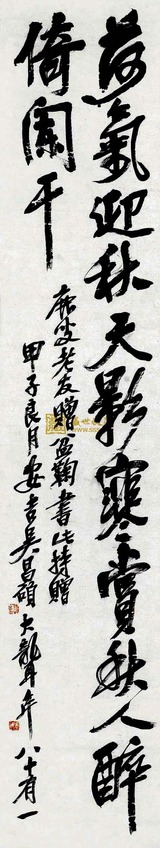 荷氣迎秋天影寒賞秋人醉
倚闌干
老友贈盆鞠書此持贈
甲子良月安吉吳昌碩大聾年八十有一